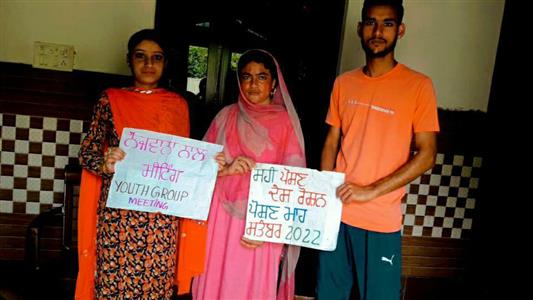 ਨੌਜਵਾਨਾਂ ਨਾਲ
ਮੀਟਿੰਗ
YOUTH GROUP
MEETING
ਸਹੀ ਪੋਸ਼ਣ
ਦੇਸ਼ ਰੋਸ਼ਨ
ਪੋਸ਼ਣ ਮਾਹ
ਸਤੰਬਰ 2022